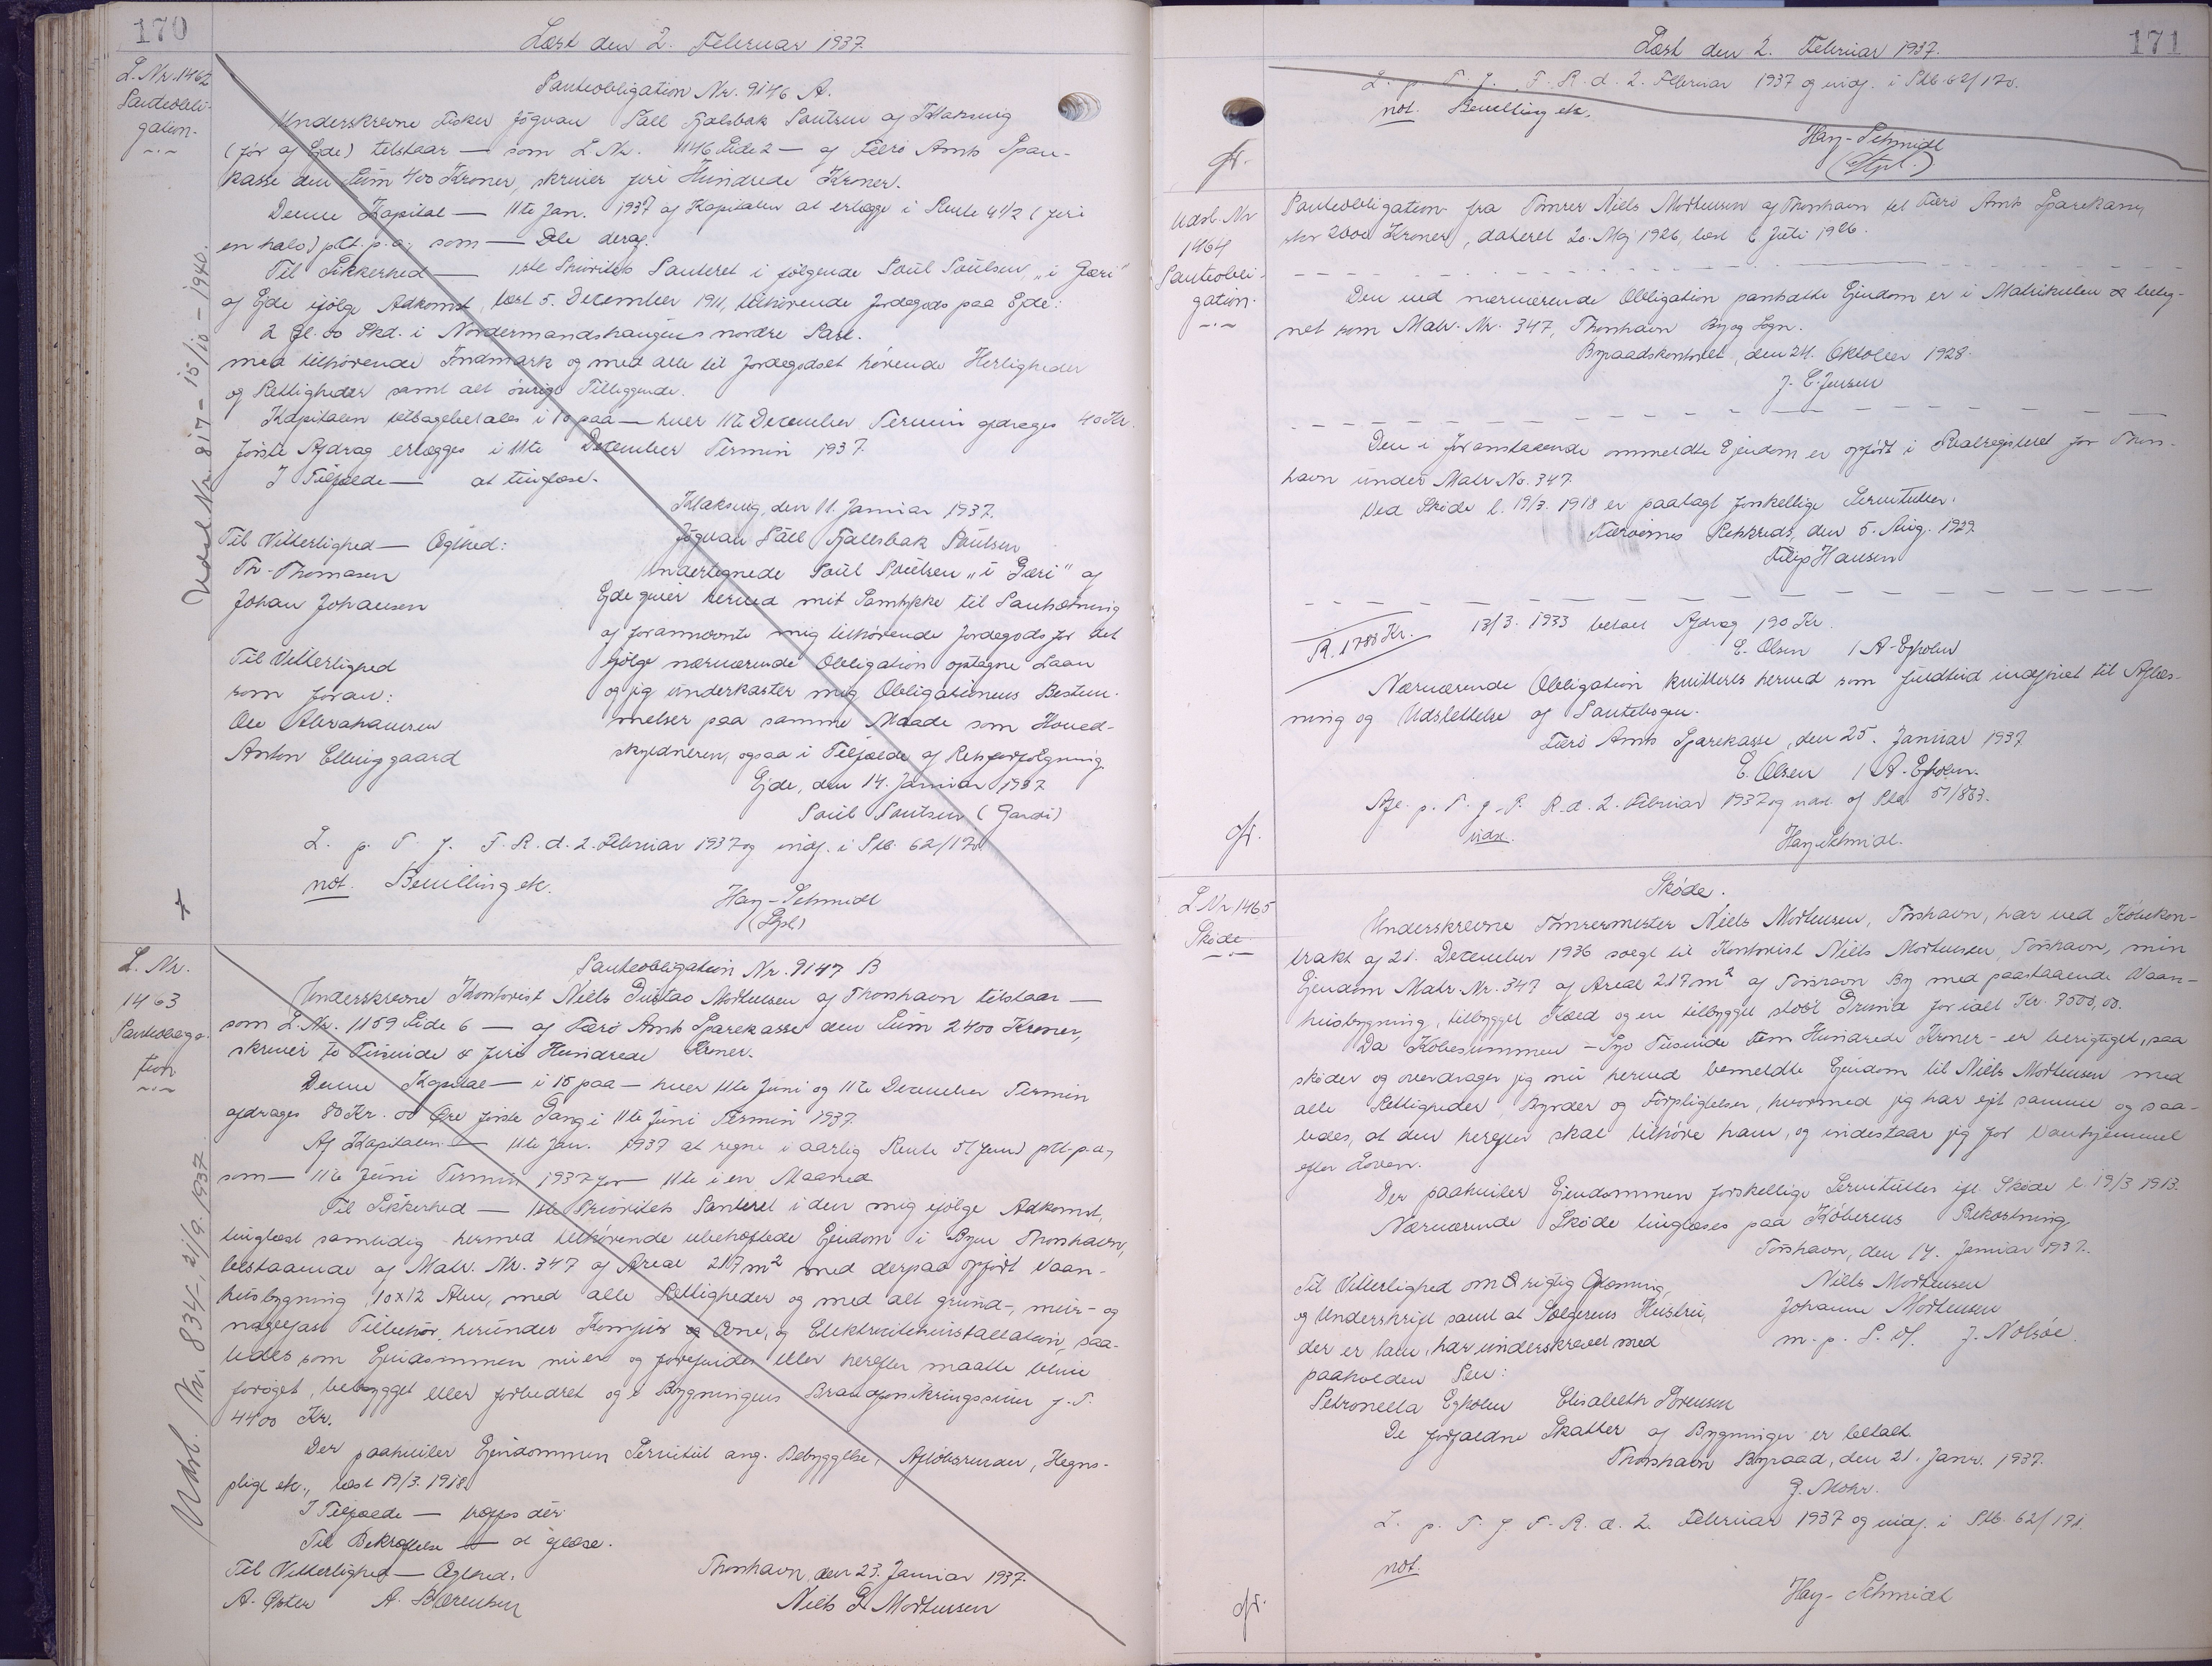 170
Læst den 2. Februar 1937.
L. Nr. 1462
Panteobli-
gation.
Panteobligation Nr. 9146 A.
Underskrevne Fisker Jógvan Páll Fjallsbak Poulsen af Klaksvig
(før af Ejde) tilstaar — som L. Nr. 1146 Side 2 — af Færø Amts Spare-
kasse den Sum 400 Kroner, skriver fire Hundrede Kroner.
Denne Kapital — 11te Jan. 1937 af Kapitalen at erlægge i Rente 4 1/2 (fire
en halv) pCt. p. a. som — Dele deraf.
Til Sikkerhed — 1ste Prioritets Panteret i følgende Poul Poulsen „i Gæri"
af Ejde ifølge Adkomst, læst 5. December 1911, tilhørende Jordegods paa Ejde:
2 Gl. 00 Skd. i Nordermandshaugens nordre Part.
med tilhørende Indmark og med alle til Jordegodset hørende Herligheder
og Rettigheder samt alt øvrigt Tilliggende.
Kapitalen tilbagebetales i 10 paa — hver 11te December Termin afdrages 40 Kr.
Første Afdrag erlægges i 11te December Termin 1937.
I Tilfælde — at tinglæse.
Klaksvig, den 11. Januar 1937.
Jógvan Páll Fjallsbak Poulsen
Til Vitterlighed — Ægthed:
Th. Thomasen
Johan Johansen
Undertegnede Poul Poulsen „i Gæri" af
Ejde giver herved mit Samtykke til Pantsætning
af forannævnte mig tilhørende Jordegods for det
ifølge nærværende Obligation optagne Laan
og jeg underkaster mig Obligationens Bestem-
melser paa samme Maade som Hoved-
skyldneren, ogsaa i Tilfælde af Retsforfølgning.
Ejde, den 14. Januar 1937
Poul Poulsen (Gardi)
Til Vitterlighed
som foran:
Ole Abrahamsen
Anton Ellingsgaard
L. p. T. f. F. R. d. 2. Februar 1937 og indf. i Ptb. 62/170.
not. Bevilling etc.
Hay-Schmidt
(Stpl)
Udsl. Nr. 817 - 15/10 - 1940.
L. Nr.
1463
Panteobliga-
tion
Panteobligation Nr. 9147 B
Underskrevne Kontorist Niels Gustav Mortensen af Thorshavn tilstaar —
som L. Nr. 1159 Side 6 — af Færø Amts Sparekasse den Sum 2400 Kroner,
skriver to Tusinde & fire Hundrede Kroner.
Denne Kapital — i 15 paa — hver 11te Juni og 11te December Termin
afdrages 80 Kr. 00 Øre første Gang i 11te Juni Termin 1937.
Af Kapitalen — 11te Jan. 1937 at regne i aarlig Rente 5 (fem) pCt. p. a.,
som — 11te Juni Termin 1937 for — 11te i en Maaned
Til Sikkerhed — 1ste Prioritets Panteret i den mig ifølge Adkomst,
tinglæst samtidig hermed tilhørende ubehæftede Ejendom i Byen Thorshavn,
bestaaende af Matr. Nr. 347 af Areal 217 m² med derpaa opført Vaan-
husbygning, 10x12 Alen, med alle Rettigheder og med alt grund-, mur- og
nagelfast Tilbehør, herunder Komfur og Ovne, og Elektricitetsinstallation, saa-
ledes som Ejendommen nu er og forefindes eller herefter maatte blive
forøget, bebygget eller forbedret og i Bygningens Brandforsikringssum f. T.
4400 Kr.
Der paahviler Ejendommen Servitut ang. Bebyggelse, Afløbsrender, Hegns-
pligt etc., læst 19/3. 1918.
I Tilfælde — træffes dér.
Til Bekræftelse — at tglæse.
Til Vitterlighed — Ægthed.
Thorshavn, den 23. Januar 1937.
Niels G. Mortensen
Udsl. Nr. 834, 21/9. 1937.
171
Læst den 2. Februar 1937.
L. p. T. f. F. R. d. 2. Februar 1937 og indf. i Ptb. 62/170.
not. Bevilling etc.
Hay-Schmidt
(Stpl.)
Udsl. Nr
1464
Panteobli-
gation.
Panteobligation fra Tømrer Niels Mortensen af Thorshavn til Færø Amts Sparekasse
stor 2000 Kroner, dateret 20. Maj 1926, læst 6 Juli 1926.
Den ved nærværende Obligation pantsatte Ejendom er i Matrikulen beteg-
net som Matr. Nr. 347, Thorshavn By og Sogn.
Byraadskontoret, den 24. Oktober 1928.
J. C. Jensen
Den i foranstaaende ommeldte Ejendom er opført i Realregisteret for Thors-
havn under Matr. No. 347.
Ved Skøde l. 19/3. 1918 er paalagt forskellige Servitutter.
Færøernes Retskreds, den 5. Aug. 1929.
Filip Hansen
R. 1788 Kr.
13/3. 1933 betalt Afdrag 190 Kr.
E. Olsen / A. Egholm
Nærværende Obligation kvitteres herved som fuldtud indfriet til Aflæs-
ning og Udslettelse af Pantebogen.
Færø Amts Sparekasse, den 25. Januar 1937
E. Olsen / A. Egholm.
Afl. p. T. f. F. R. d. 2. Februar 1937 og udsl. af Ptb. 51/853.
udsl.
Hay-Schmidt.
L. Nr 1465
Skøde
Skøde.
Underskrevne Tømrermester Niels Mortensen, Torshavn, har ved Købekon-
trakt af 21. December 1936 solgt til Kontorist Niels Mortensen, Torshavn, min
Ejendom Matr. Nr. 347 af Areal 217 m² af Torshavn By med paastaaende Vaan-
husbygning, tilbygget Kæld og en tilbygget støbt Grund for ialt Kr. 7500,00.
Da Købesummen — Syv Tusinde Fem Hundrede Kroner — er berigtiget, saa
skøder og overdrager jeg nu herved bemeldte Ejendom til Niels Mortensen med
alle Rettigheder, Byrder og Forpligtelser, hvormed jeg har ejet samme og saa-
ledes, at den herefter skal tilhøre ham, og indestaar jeg for Vanhjemmel
efter Loven.
Der paahviler Ejendommen forskellige Servitutter ifl. Skøde l. 19/3 1913.
Nærværende Skøde tinglæses paa Køberens Bekostning.
Torshavn, den 14. Januar 1937.
Niels Mortensen
Johanne Mortensen
m. p. P. v/ J. Nolsøe.
Til Vitterlighed om rigtig
og Underskrift samt at Sælgerens Hustru,
der er lam, har underskrevet med
paaholden Pen:
Petronella Egholm Elisabeth Sørensen
De forfaldne Skatter af Bygninger er betalt
Thorshavn Byraad, den 21. Janr. 1937.
G. Mohr.
L. p. T. f. F. R. d. 2. Februar 1937 og indf. i Ptb. 62/171.
not.
Hay-Schmidt